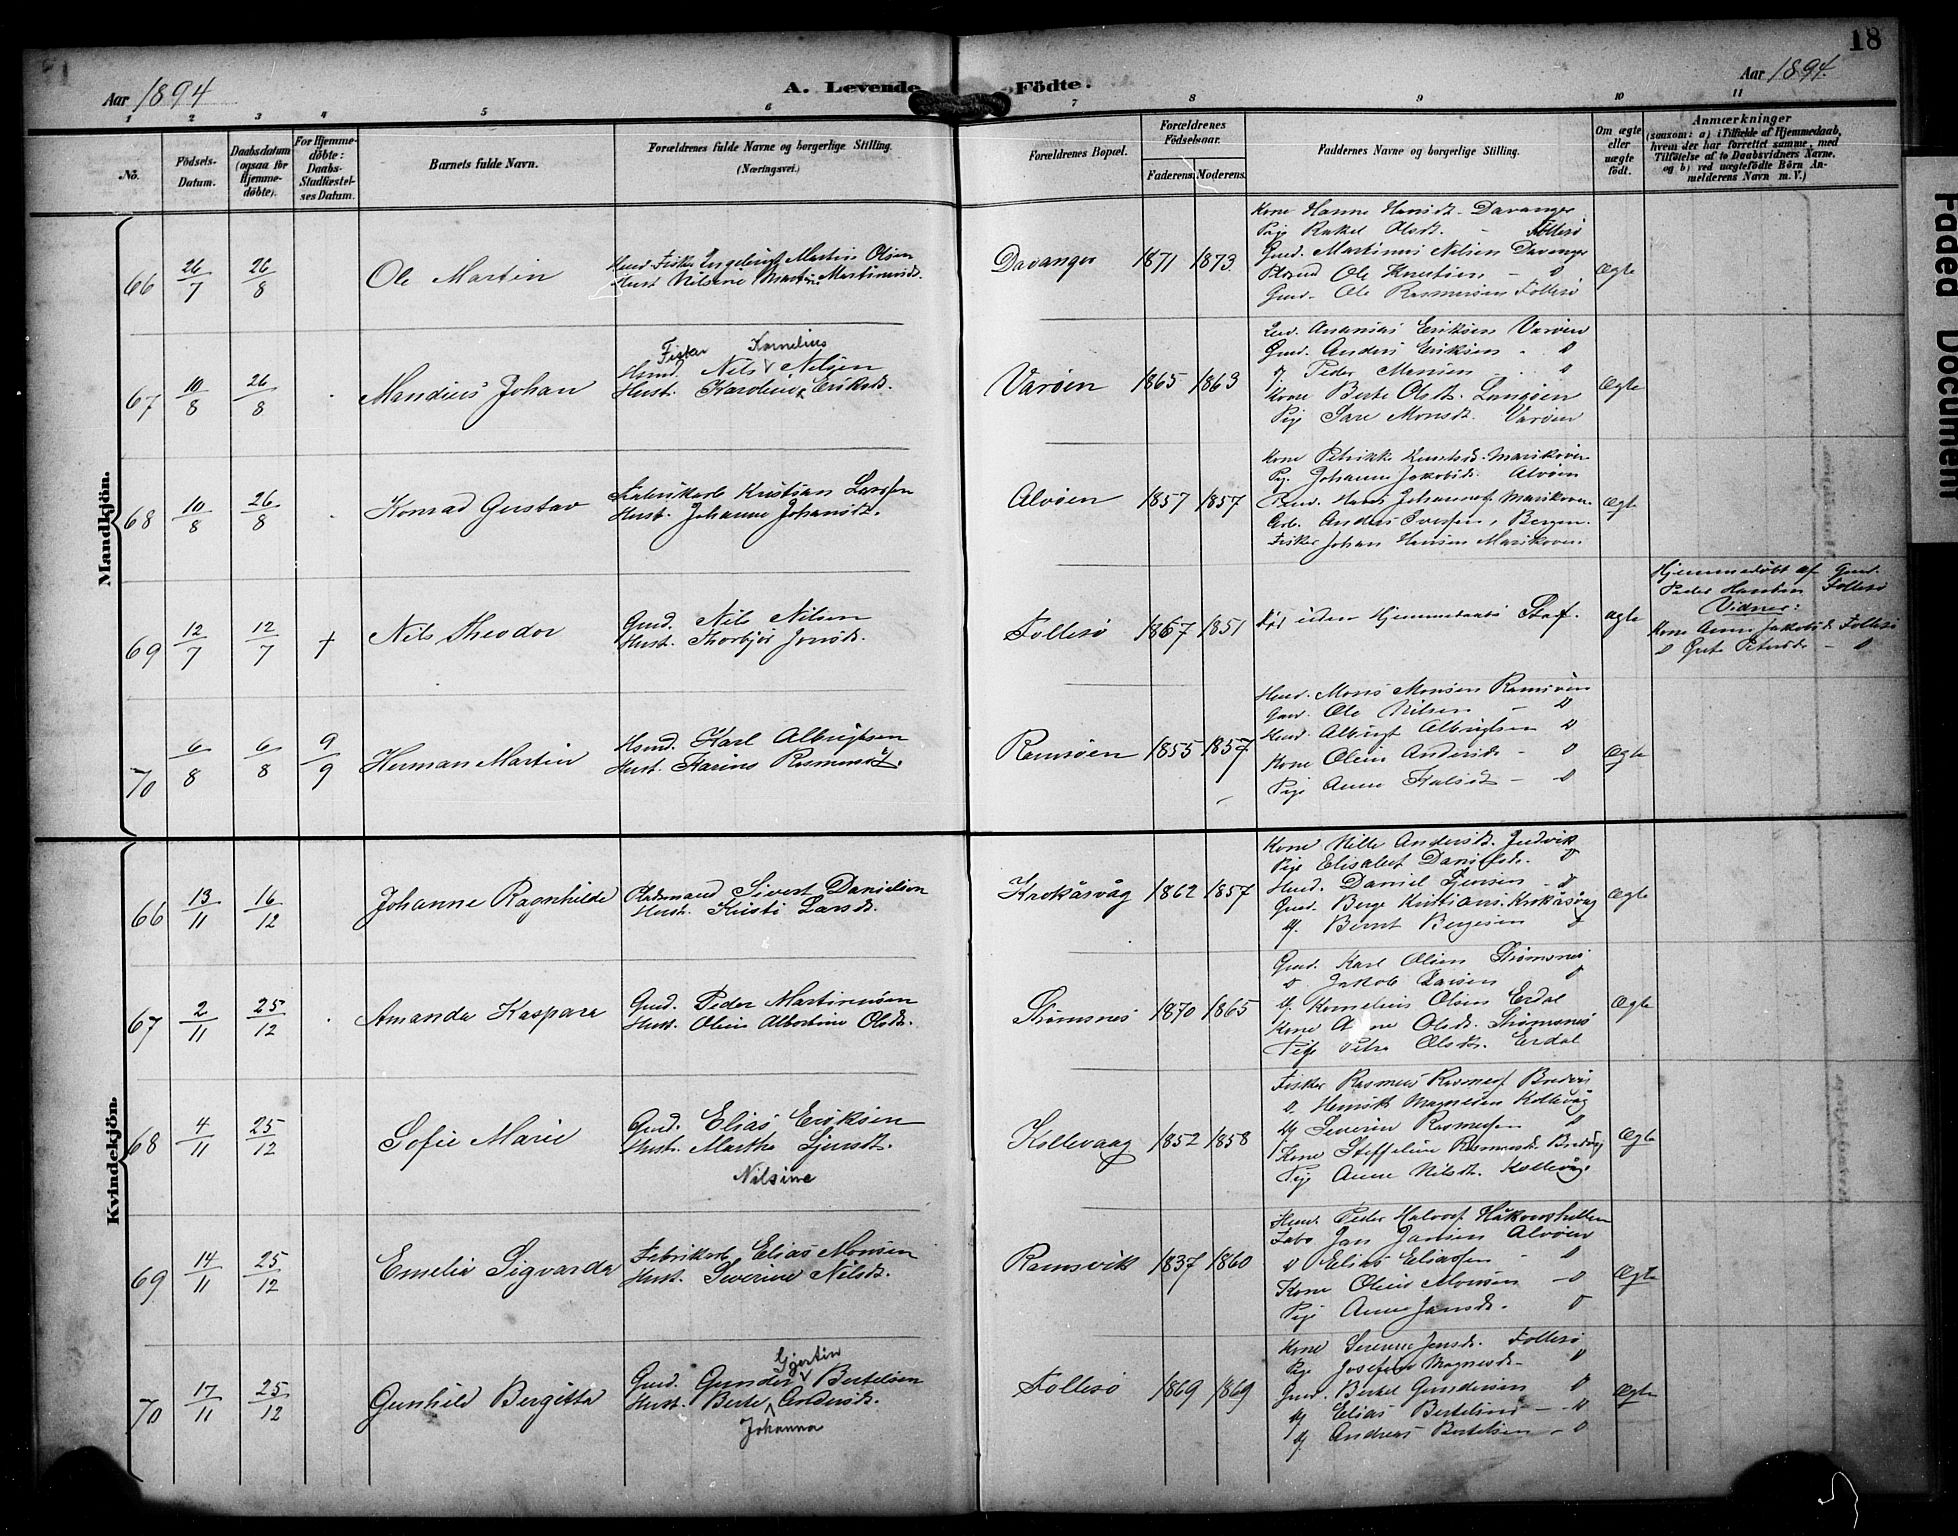 18
Aar 1894
A. Levende Födte.
Aar 1894.
1 2 3 4 5 6 7 8 9 10 11
No.
Födsels-Datum.
Daabsdatum (ogsaa for Hjemme-döbte).
For Hjemme-döbte: Daabs-Stadfæstel-ses Datum.
Barnets fulde Navn.
Forældrenes fulde Navne og borgerlige Stilling.
(Næringsvei.)
Forældrenes Bopæl.
Forældrenes Födselsaar.
Faderens. Moderens.
Faddernes Navne og borgerlige Stilling.
Om ægte eller uægte födt.
Anmærkninger
(saasom: a) i Tilfælde af Hjemmedaab, hvem der har forrettet samme, med Tilföielse af to Daabsvidners Navne, og b) ved uægtefödte Börn An-melderens Navn m. V.)
Mandkjön.
66 26/7 26/8 Ole Martin
Husmd. Fisker Ingebrigt Martin Olsen
Hust. Nilsine Martine Martinusd.
Davanger 1871 1873
Kone Hanne Hansdt. Davanger
Pige Rakel Olsdt. - Follesö
Gmd. Martinus Nilsen Davanger
Ole Knutsen - D
Gmd. Ole Rasmusen Follesö
Ægte
67 10/8 26/8 Mandius Johan
Fisker Kornelius
Hsmd. Nils Nilsen
Hust. Karoline Eriksd.
Varöen 1865 1863
Ananias Eriksen Varöen
Gmd. Anders Eriksen - D
Peder Monsen - D
Kone Berte Olsdt. Langöen
Pige Sare Monsdt. Varöen
Ægte
68 10/8 26/8 Konrad Gustav
Fabrikarb. Kristian Larssen
Hust. Johanne Johansdt.
Alvöen 1857 1857
Kone Petrikke Knutsd. Marikoven
Pg. Johanne Jakobsd. Alvöen
Hans Johannes. Marikoven
Arb. Anders Iversen, Bergen.
Fisker Johan Hansen Marikoven.
Ægte
69 12/7 12/7 + Nils Theodor
Gmd. Nils Nilsen
Hust. Thorbjör Jonsd.
Follesö 1867 1851
Död uden Hjemmedaabs Staf.
ægte
Hjemmedöbt af Gmd.
Peder Hansen Follesö
Vidner:
Kone Anne Jakobsd. Follesö
D Gurte Petersdr - D
70 6/8 6/8 9/9 Herman Martin
Hsmd. Karl Albrigtsen
Hust. Karine Rasmusdt.
Ramsöen 1855 1857
Hmd. Mons Monsen Ramsöen
Gmd. Ole Nilsen - D
Hmd. Albrigt Albrigtsen D
Kone Oline Andersdr - D
Pige Anne Karlsdt - D
Ægte
Kvindekjön.
66 13/11 16/12 Johanne Ragnhilde
Pladsmand Sivert Danielsen
Hust. Kristi Larsd.
Krokåsvåg 1862 1857
Kone Nille Andersdt. Judvik
Pige Elisabet Danielsd. D
Hmd. Daniel - D
Gmd. Berge Kristians. Krokåsvåg
Uf. Bernt Bergesen D
Ægte
67 2/11 25/12 Amanda Kaspara
Gmd. Peder Martinusen
Hust. Oline Albertine Olsdr.
Strömsnes 1870 1865
Gmd. Karl Olsen Strömsnes
D Jakob Larsen D
Uf. Kornelius Olsen Erdal
Kone Anne Olsdt. Strömsnes
Pige Petra Olsdt. Erdal
Ægte
68 4/11 25/12 Sofie Marie
Gmd. Elias Eriksen
Hust. Martha Sjursdt.
Kollevaag 1852 1858
Fisker Rasmus Rasmus. Bredvig
D. Henrik Magnesen Kollevåg
Uf. Severin Rasmussen D
Kone Steffeline Rasmusdt. Bredvig
Pige Anne Nilsdt. Kollevåg
Ægte
Nilsine
69 14/11 25/12 Emelie Sigvarda
Fabrikarb. Elias Monsen
Hust. Severine Nilsdt.
Ramsvik 1837 1860
Hmd. Peder Halvors. Håkonshellen
Fabr. Jan Jansen Alvöen
D Elias Eliassen - D
Kone Oline Monsen - D
Pige Anne Jansdt. D
Ægte
70 17/11 25/12 Gunhild Bergitta
Gjertin
Gmd. Gunder Bertelsen
Hust. Berte Andersdt.
Johanna
Follesö 1869 1869
Kone Severine Jensd. Follesö
Pige Josefine Magnesdt - D
Gmd. Bertel Gundersen D
Uf. Elias Bertelsen - D
Uf. Andreas Bertelsen - D
Ægte
Faded Document